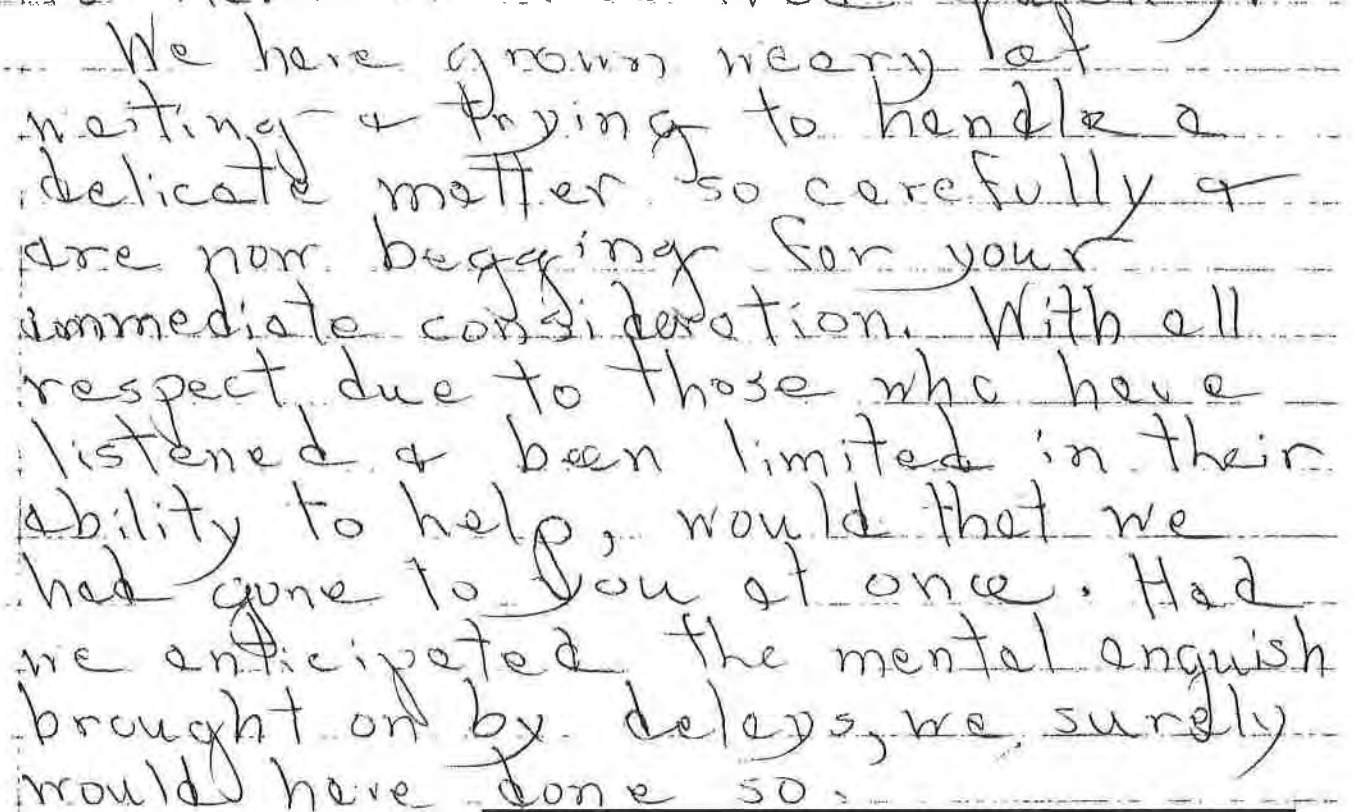 We have grown weary of
waiting & trying to handle a
delicate matter so carefully &
are now begging for your
immediate consideration. With all
respect due to those who have
listened & been limited in their
ability to help, would that we
had gone to you at once. Had
we anticipated the mental anguish
brought on by delays, we surely
would have done so.